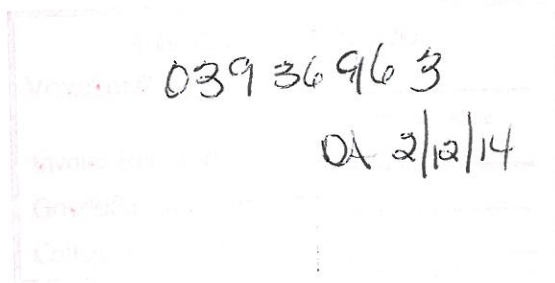 03936963
DA 2/12/14